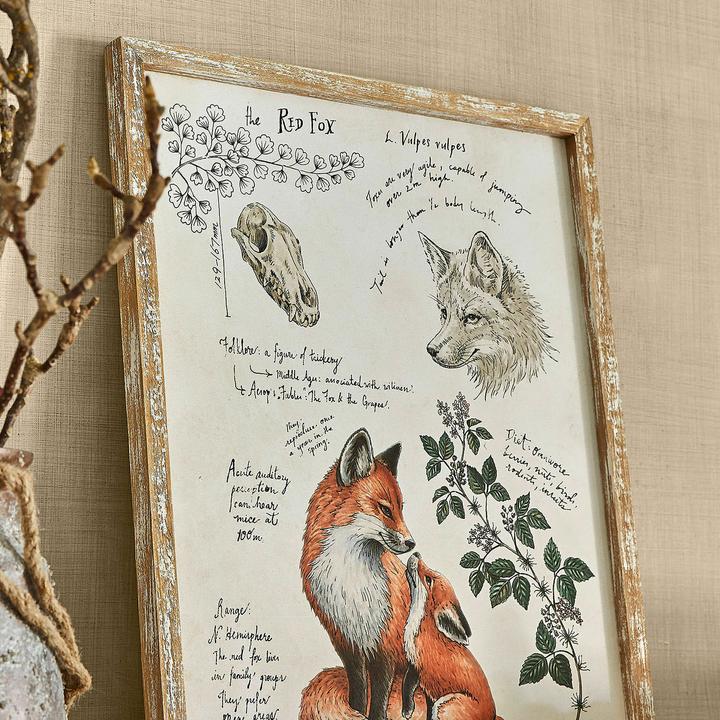 the RED FOX
L. Vulpes vulpes
Foxes are very agile, capable of jumping
over 2m high.
Tail is longer than ½ body length.
129-167mm
Folklore: a figure of trickery
Middle Ages: associated with wiliness.
Aesop's "Fables": The Fox & the Grapes.
They
reproduce once
a year in the
spring.
Diet: Omnivore
berries, nuts, birds,
rodents, insects
Acute auditory
perception
can hear
mice at
100m.
Range:
N. Hemisphere
The red fox lives
in family groups
They prefer
open areas